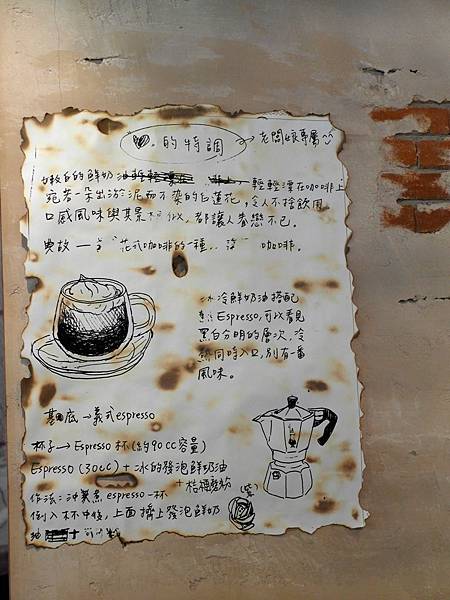 ♡的特調 → 老闆娘專屬
嫩白的鮮奶油 輕輕漂在咖啡上
宛若一朵出淤泥而不染的白蓮花，令人不捨飲用
口感風味與其景 ，都讓人眷戀不已。
典故 — 「花式咖啡的一種 咖啡。
冰冷鮮奶油搭配
Espresso，可以看見
黑白分明的層次，冷
熱同時入口，別有一番
風味。
基底 → 義式espresso
杯子 → Espresso 杯(約90CC容量)
Espresso (30CC) + 冰的發泡鮮奶油
+
作法：沖煮 espresso 一杯
倒入杯中後，上面擠上發泡鮮奶
油